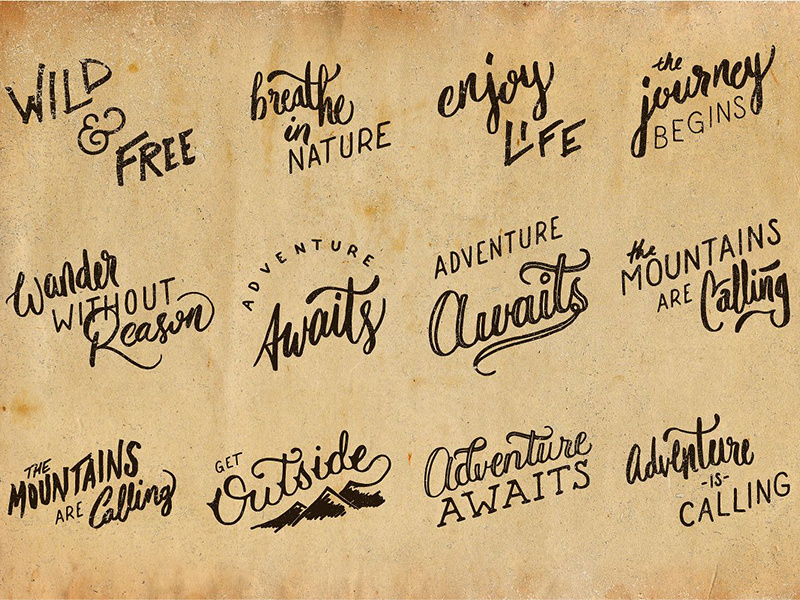 WILD
&
FREE
breathe
in
NATURE
enjoy
LIFE
the
journey
BEGINS
Wander
WITHOUT
Reason
ADVENTURE
Awaits
ADVENTURE
Awaits
the
MOUNTAINS
ARE Calling
THE
MOUNTAINS
ARE Calling
GET
Outside
Adventure
AWAITS
Adventure
-IS-
CALLING